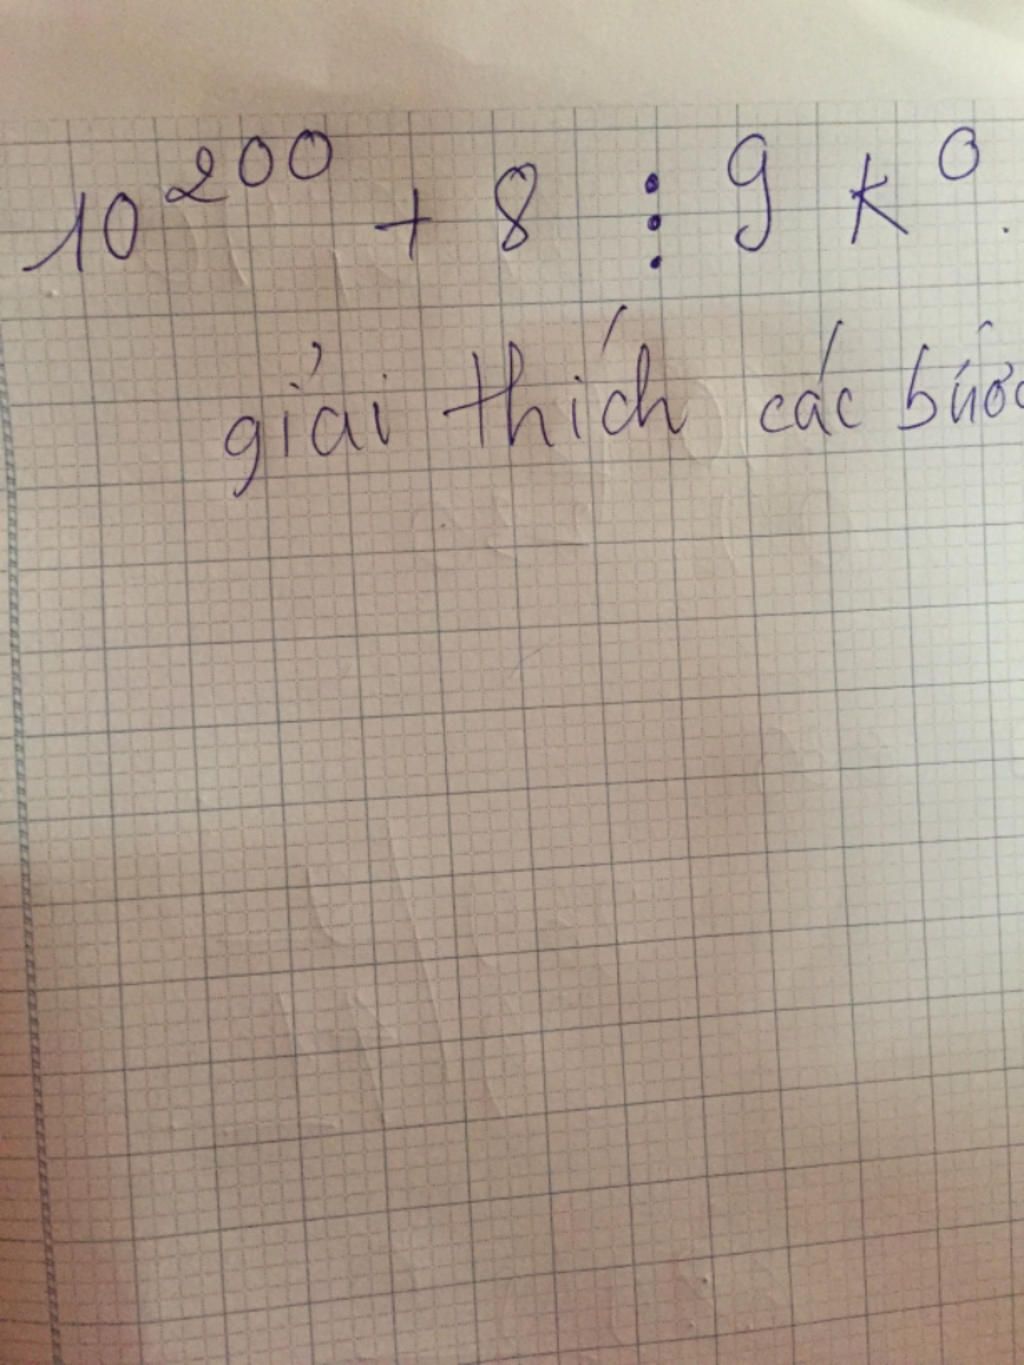 10²⁰⁰ + 8 ⋮ 9 k⁰.
giải thích các bước